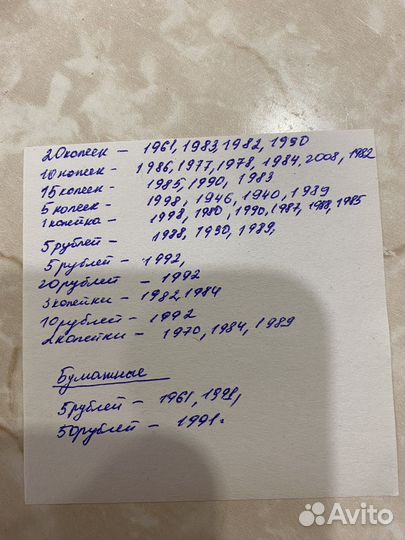 20 копеек – 1961, 1983, 1982, 1990
10 копеек – 1986, 1977, 1978, 1984, 2008, 1982
15 копеек – 1985, 1990, 1983
5 копеек – 1998, 1946, 1940, 1989
1 копейка – 1998, 1980, 1990, 1987, 1988, 1985
5 рублей – 1988, 1990, 1989,
5 рублей – 1992,
20 рублей – 1992
3 копейки – 1982, 1984
10 рублей – 1992
2 копейки – 1970, 1984, 1989
Бумажные
5 рублей – 1961, 1991,
50 рублей – 1991.
Avito